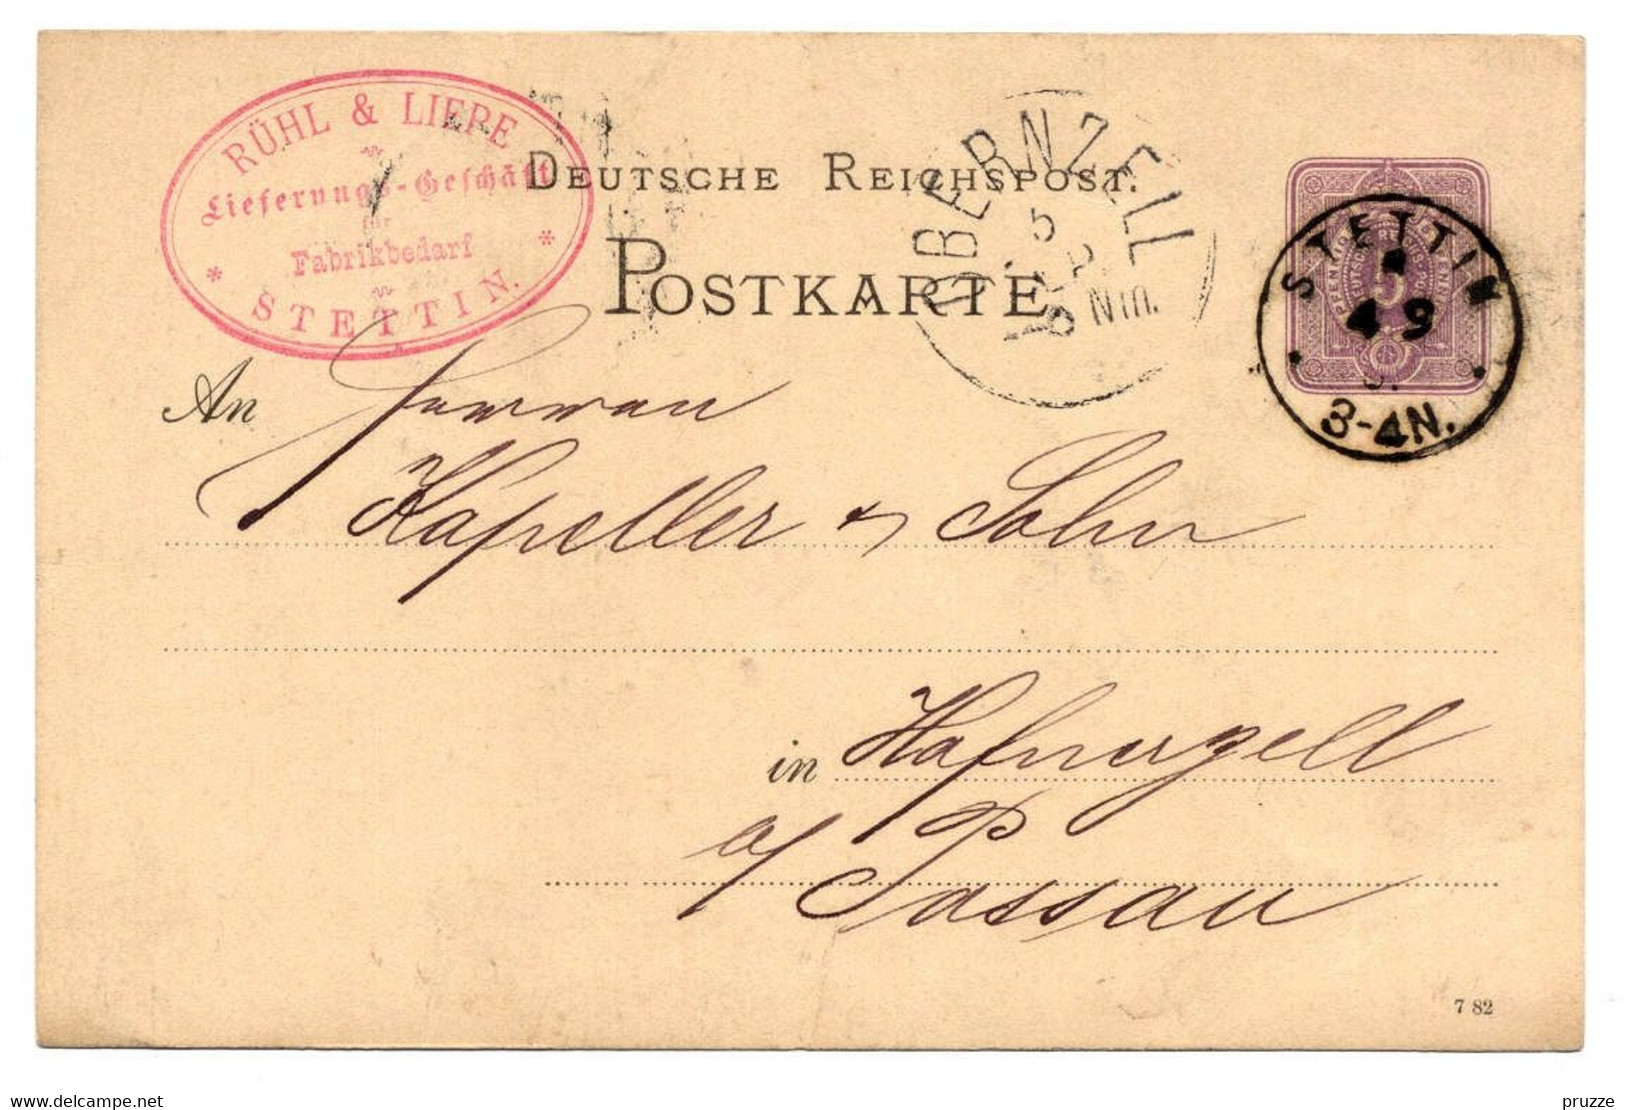 RÜHL & LIEPE
Lieferungs-Geschäft
für
Fabrikbedarf
STETTIN.
DEUTSCHE REICHSPOST.
POSTKARTE
OBERNZELL
5
Nm.
STETTIN
4 9
3-4N.
5
An Herren
Kapeller & Sohn
in Hafnerzell
a/ P
Passau
7 82
delcampe.net
pruzze